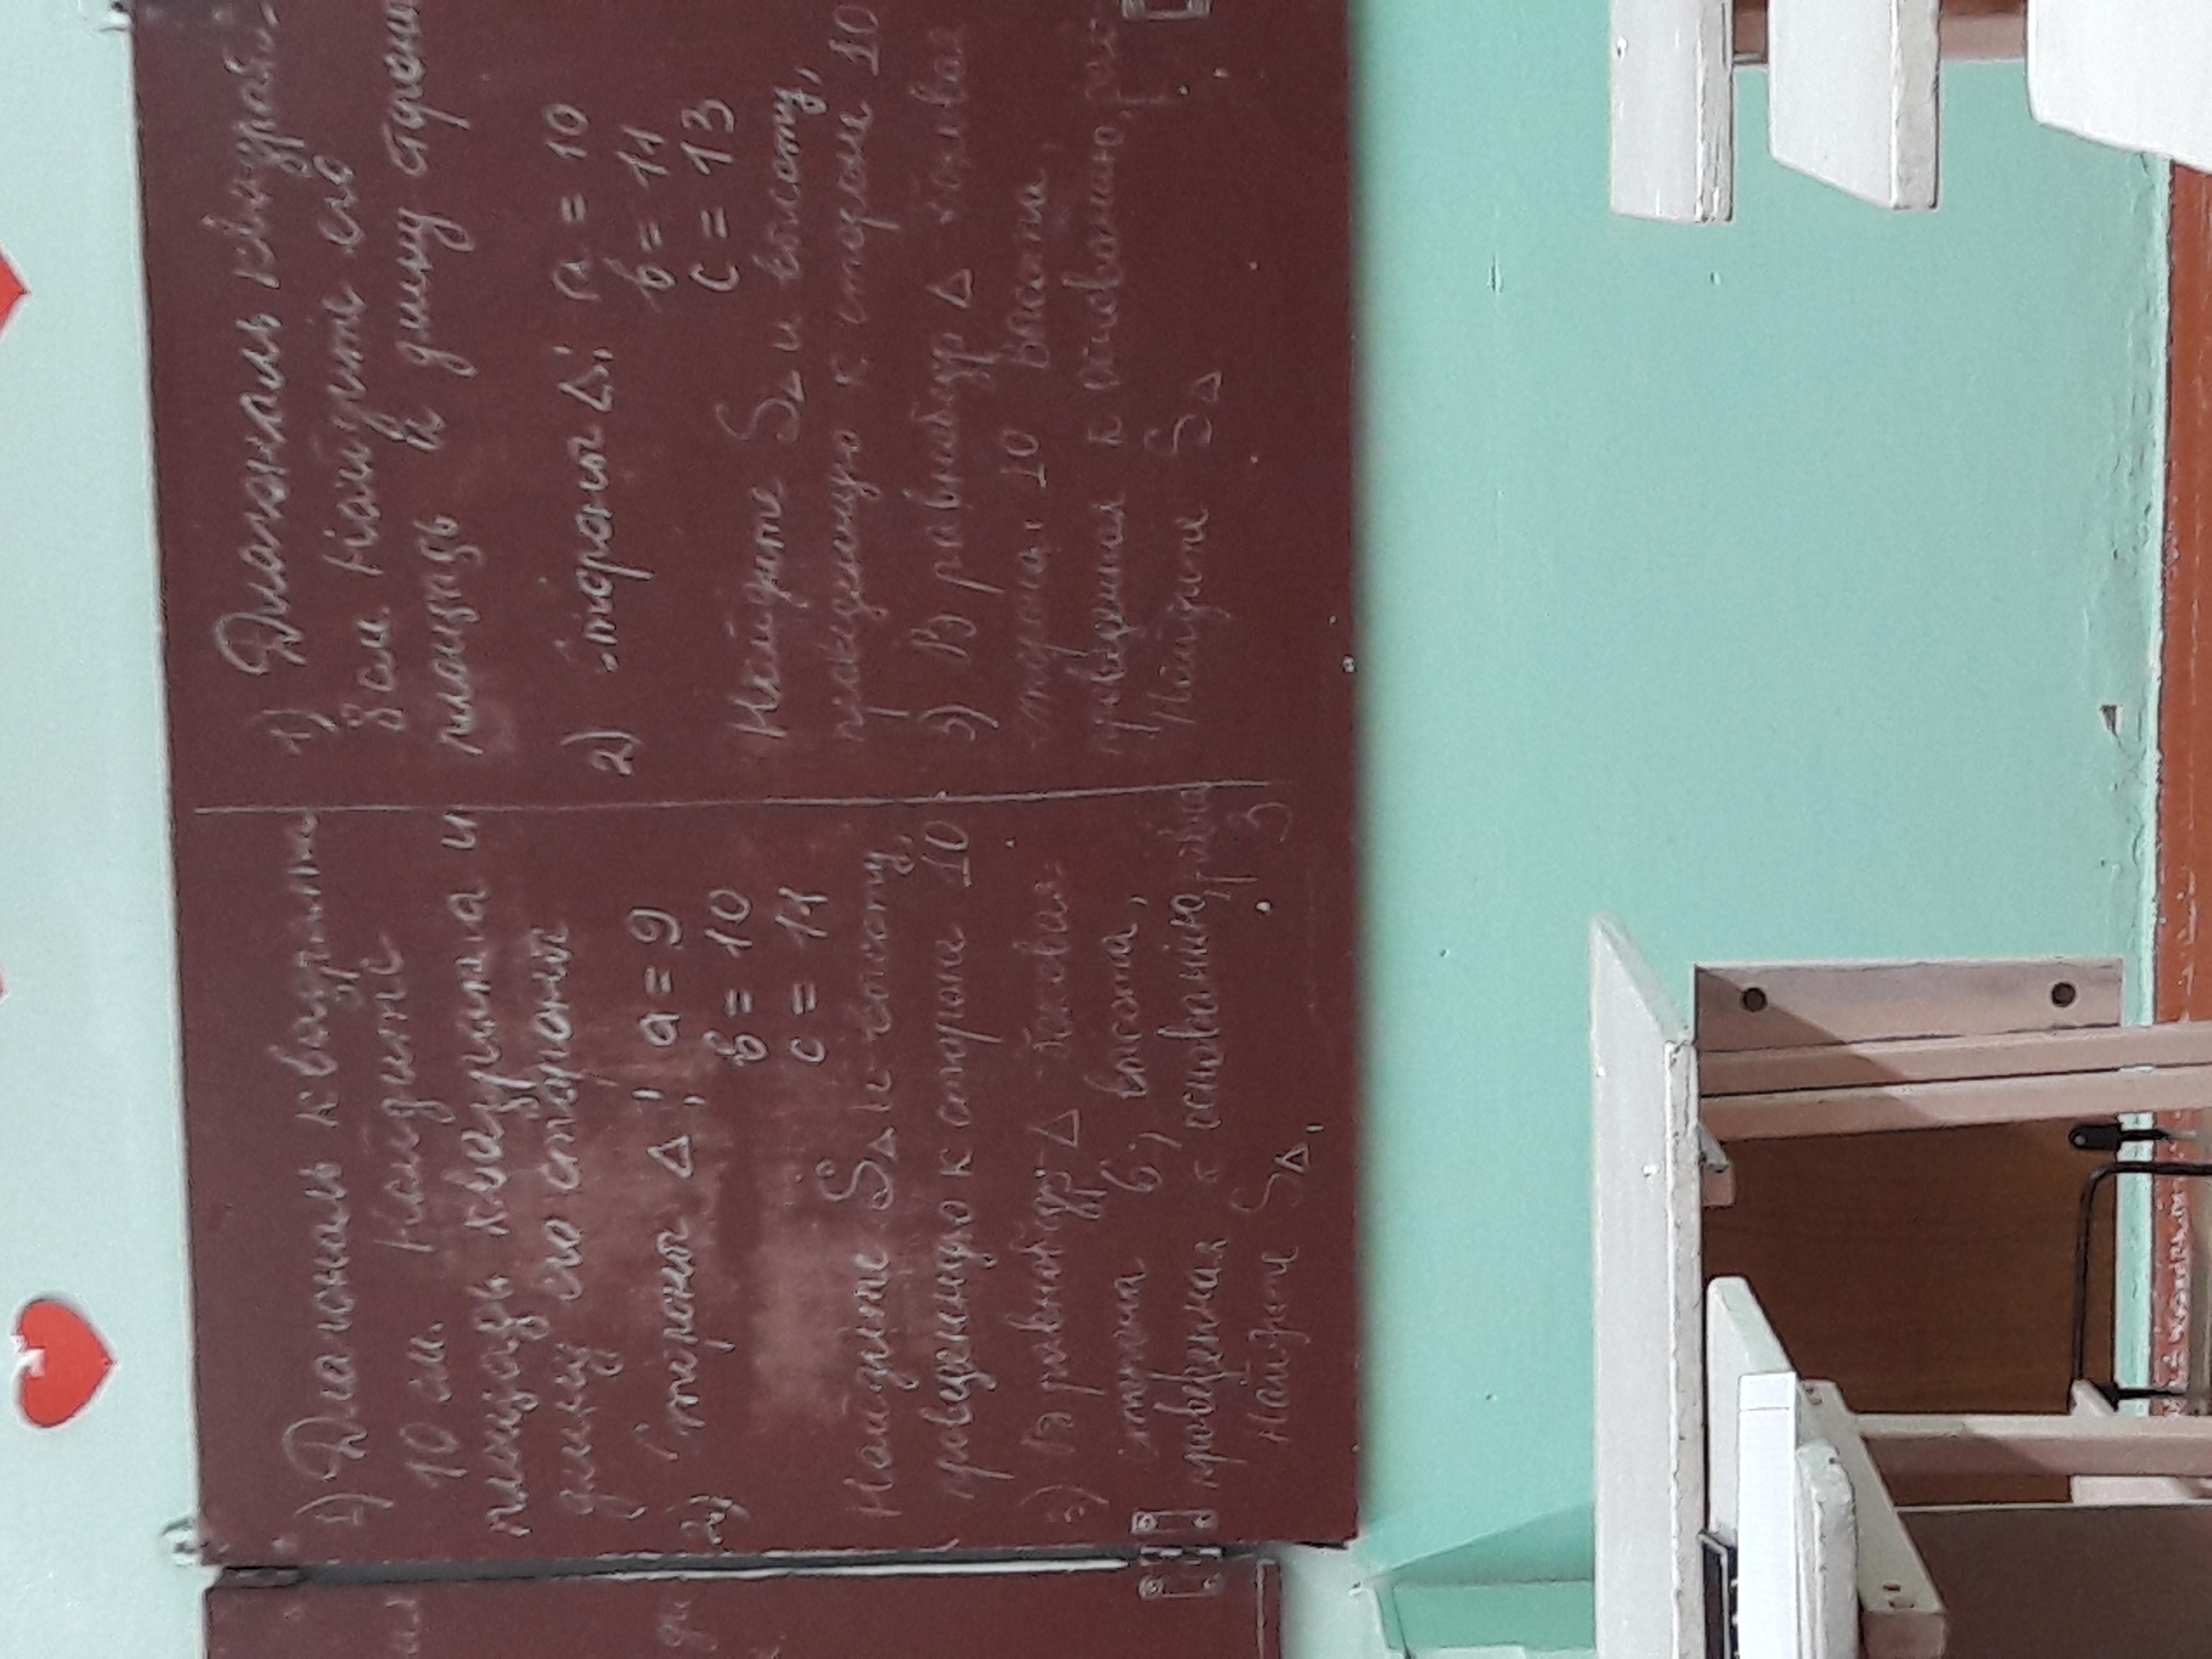 1) Диагональ квадрата
10 см. Найдите
площадь квадрата и
длину его стороны
2) Стороны Δ: a = 9
b = 10
c = 11
Найдите SΔ и высоту,
проведенную к стороне 10
3) В равнобедр Δ боковая
сторона 6, высота,
проведенная к основанию, равна 3
Найдите SΔ.
1) Диагональ квадрат
8 см Найдите его
площадь и длину сторон
2) Стороны Δ: a = 10
b = 11
c = 13
Найдите SΔ и высоту,
проведенную к стороне 10
3) В равнобедр Δ боковая
сторона 10 высота,
проведенная к основанию,
Найдите SΔ